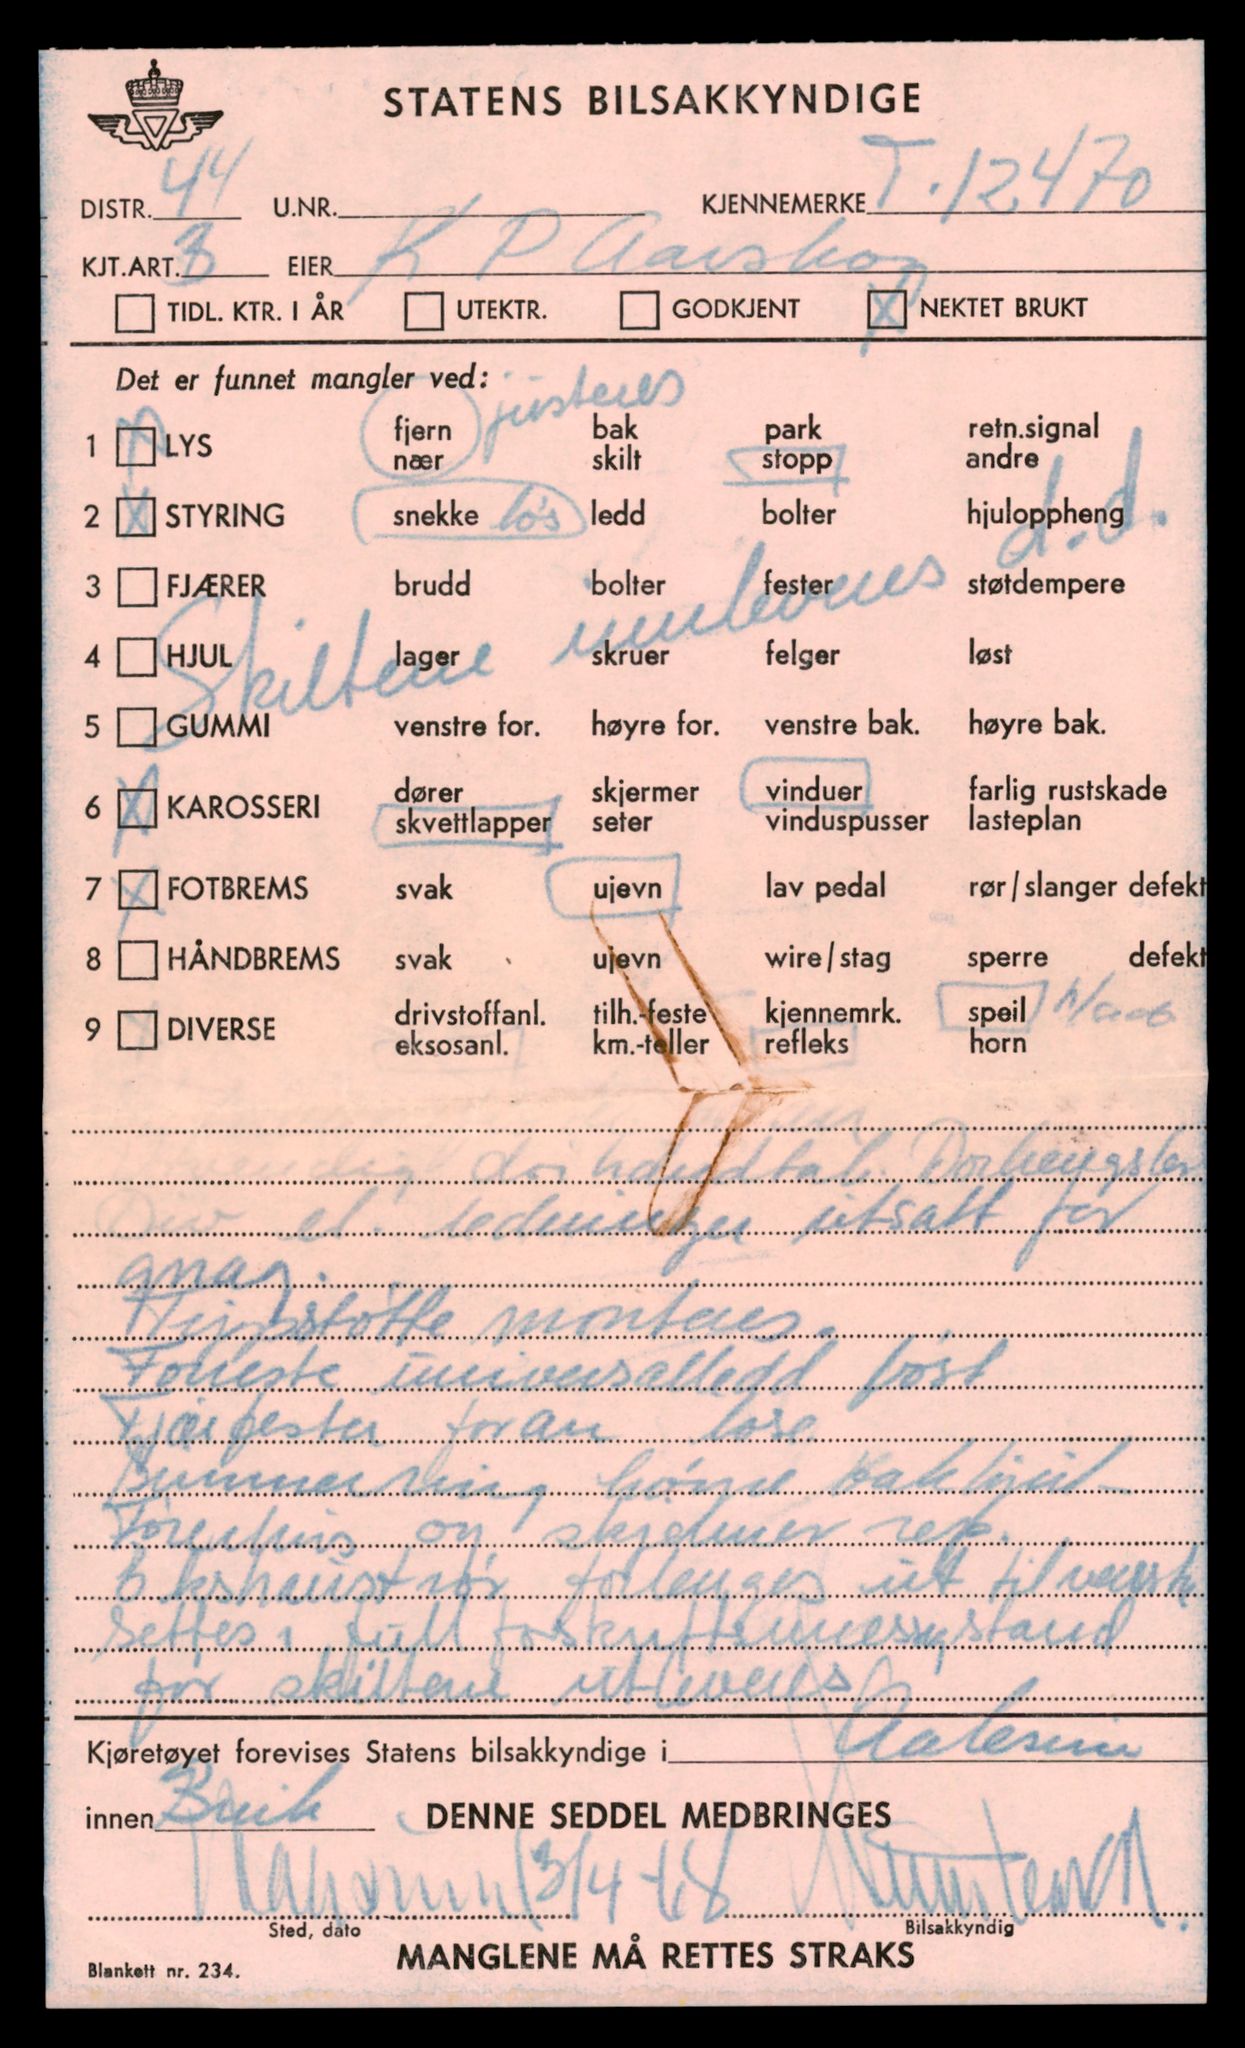 STATENS BILSAKKYNDIGE
DISTR. 44 U.NR. KJENNEMERKE T.12470
KJT.ART. 3 EIER K P Aarskog
TIDL. KTR. I ÅR UTEKTR. GODKJENT X NEKTET BRUKT
Det er funnet mangler ved: justeres
1 X LYS fjern nær bak skilt park stopp retn.signal andre
2 X STYRING snekke løs ledd bolter hjuloppheng
3 FJÆRER brudd bolter fester støtdempere
Skiltene innleveres d.d.
4 HJUL lager skruer felger løst
5 GUMMI venstre for. høyre for. venstre bak. høyre bak.
6 X KAROSSERI dører skvettlapper skjermer seter vinduer vinduspusser farlig rustskade lasteplan
7 X FOTBREMS svak ujevn lav pedal rør/slanger defekt
8 HÅNDBREMS svak ujevn wire/stag sperre defekt
9 DIVERSE drivstoffanl. eksosanl. tilh.-feste km.-teller kjennemrk. refleks speil horn
dørhåndtak. Dørhengsler
Div el. ledninger utsatt for
gnag.
Tippstøtte monteres.
Forreste universalledd løst
Fjærfester foran løse
høyre bakhjul
Førerhus og skjermer rep.
Ekshaustrør forlenges ut til venstre
Settes i full forskriftsmessig stand
før skiltene utleveres
Kjøretøyet forevises Statens bilsakkyndige i Aalesund
innen Bruk DENNE SEDDEL MEDBRINGES
3/4-68
Sted, dato Bilsakkyndig
Blankett nr. 234. MANGLENE MÅ RETTES STRAKS